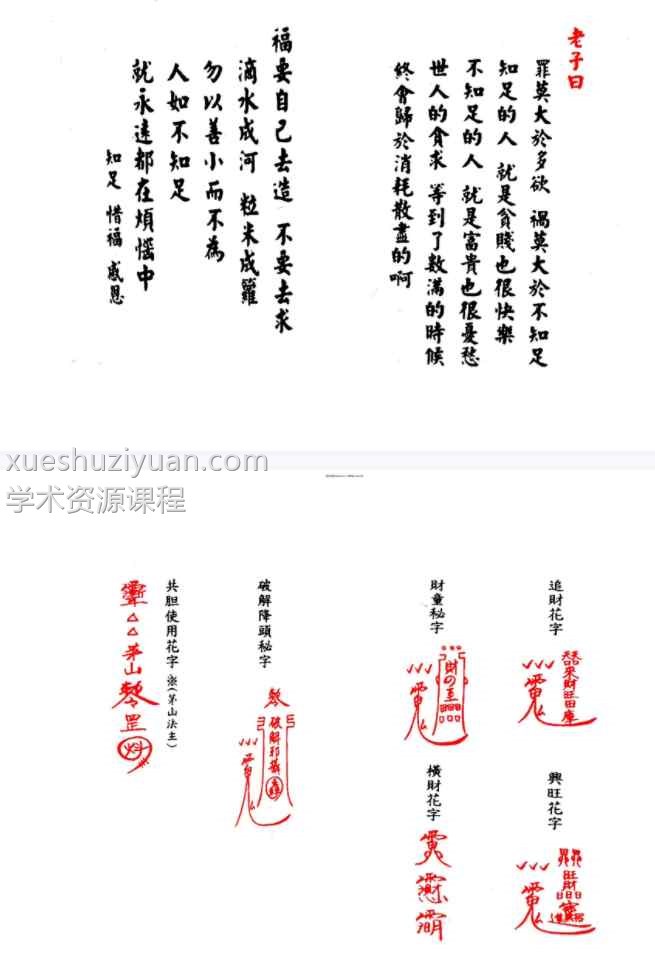 老子曰
罪莫大於多欲 禍莫大於不知足
知足的人 就是貧賤也很快樂
不知足的人 就是富貴也很憂愁
世人的貪求 等到了数滿的時候
終會歸於消耗散盡的啊
福要自己去造 不要去求
滴水成河 粒米成籮
勿以善小而不為
人如不知足
就永遠都在煩惱中
知足 惜福 感恩
xueshuziyuan.com
学术资源课程
追財花字
來財旺田庫
興旺花字
旺財
進
財童秘字
財
橫財花字
破解降頭秘字
破解邪
共胆使用花字
(茅山法主)
茅山
罡